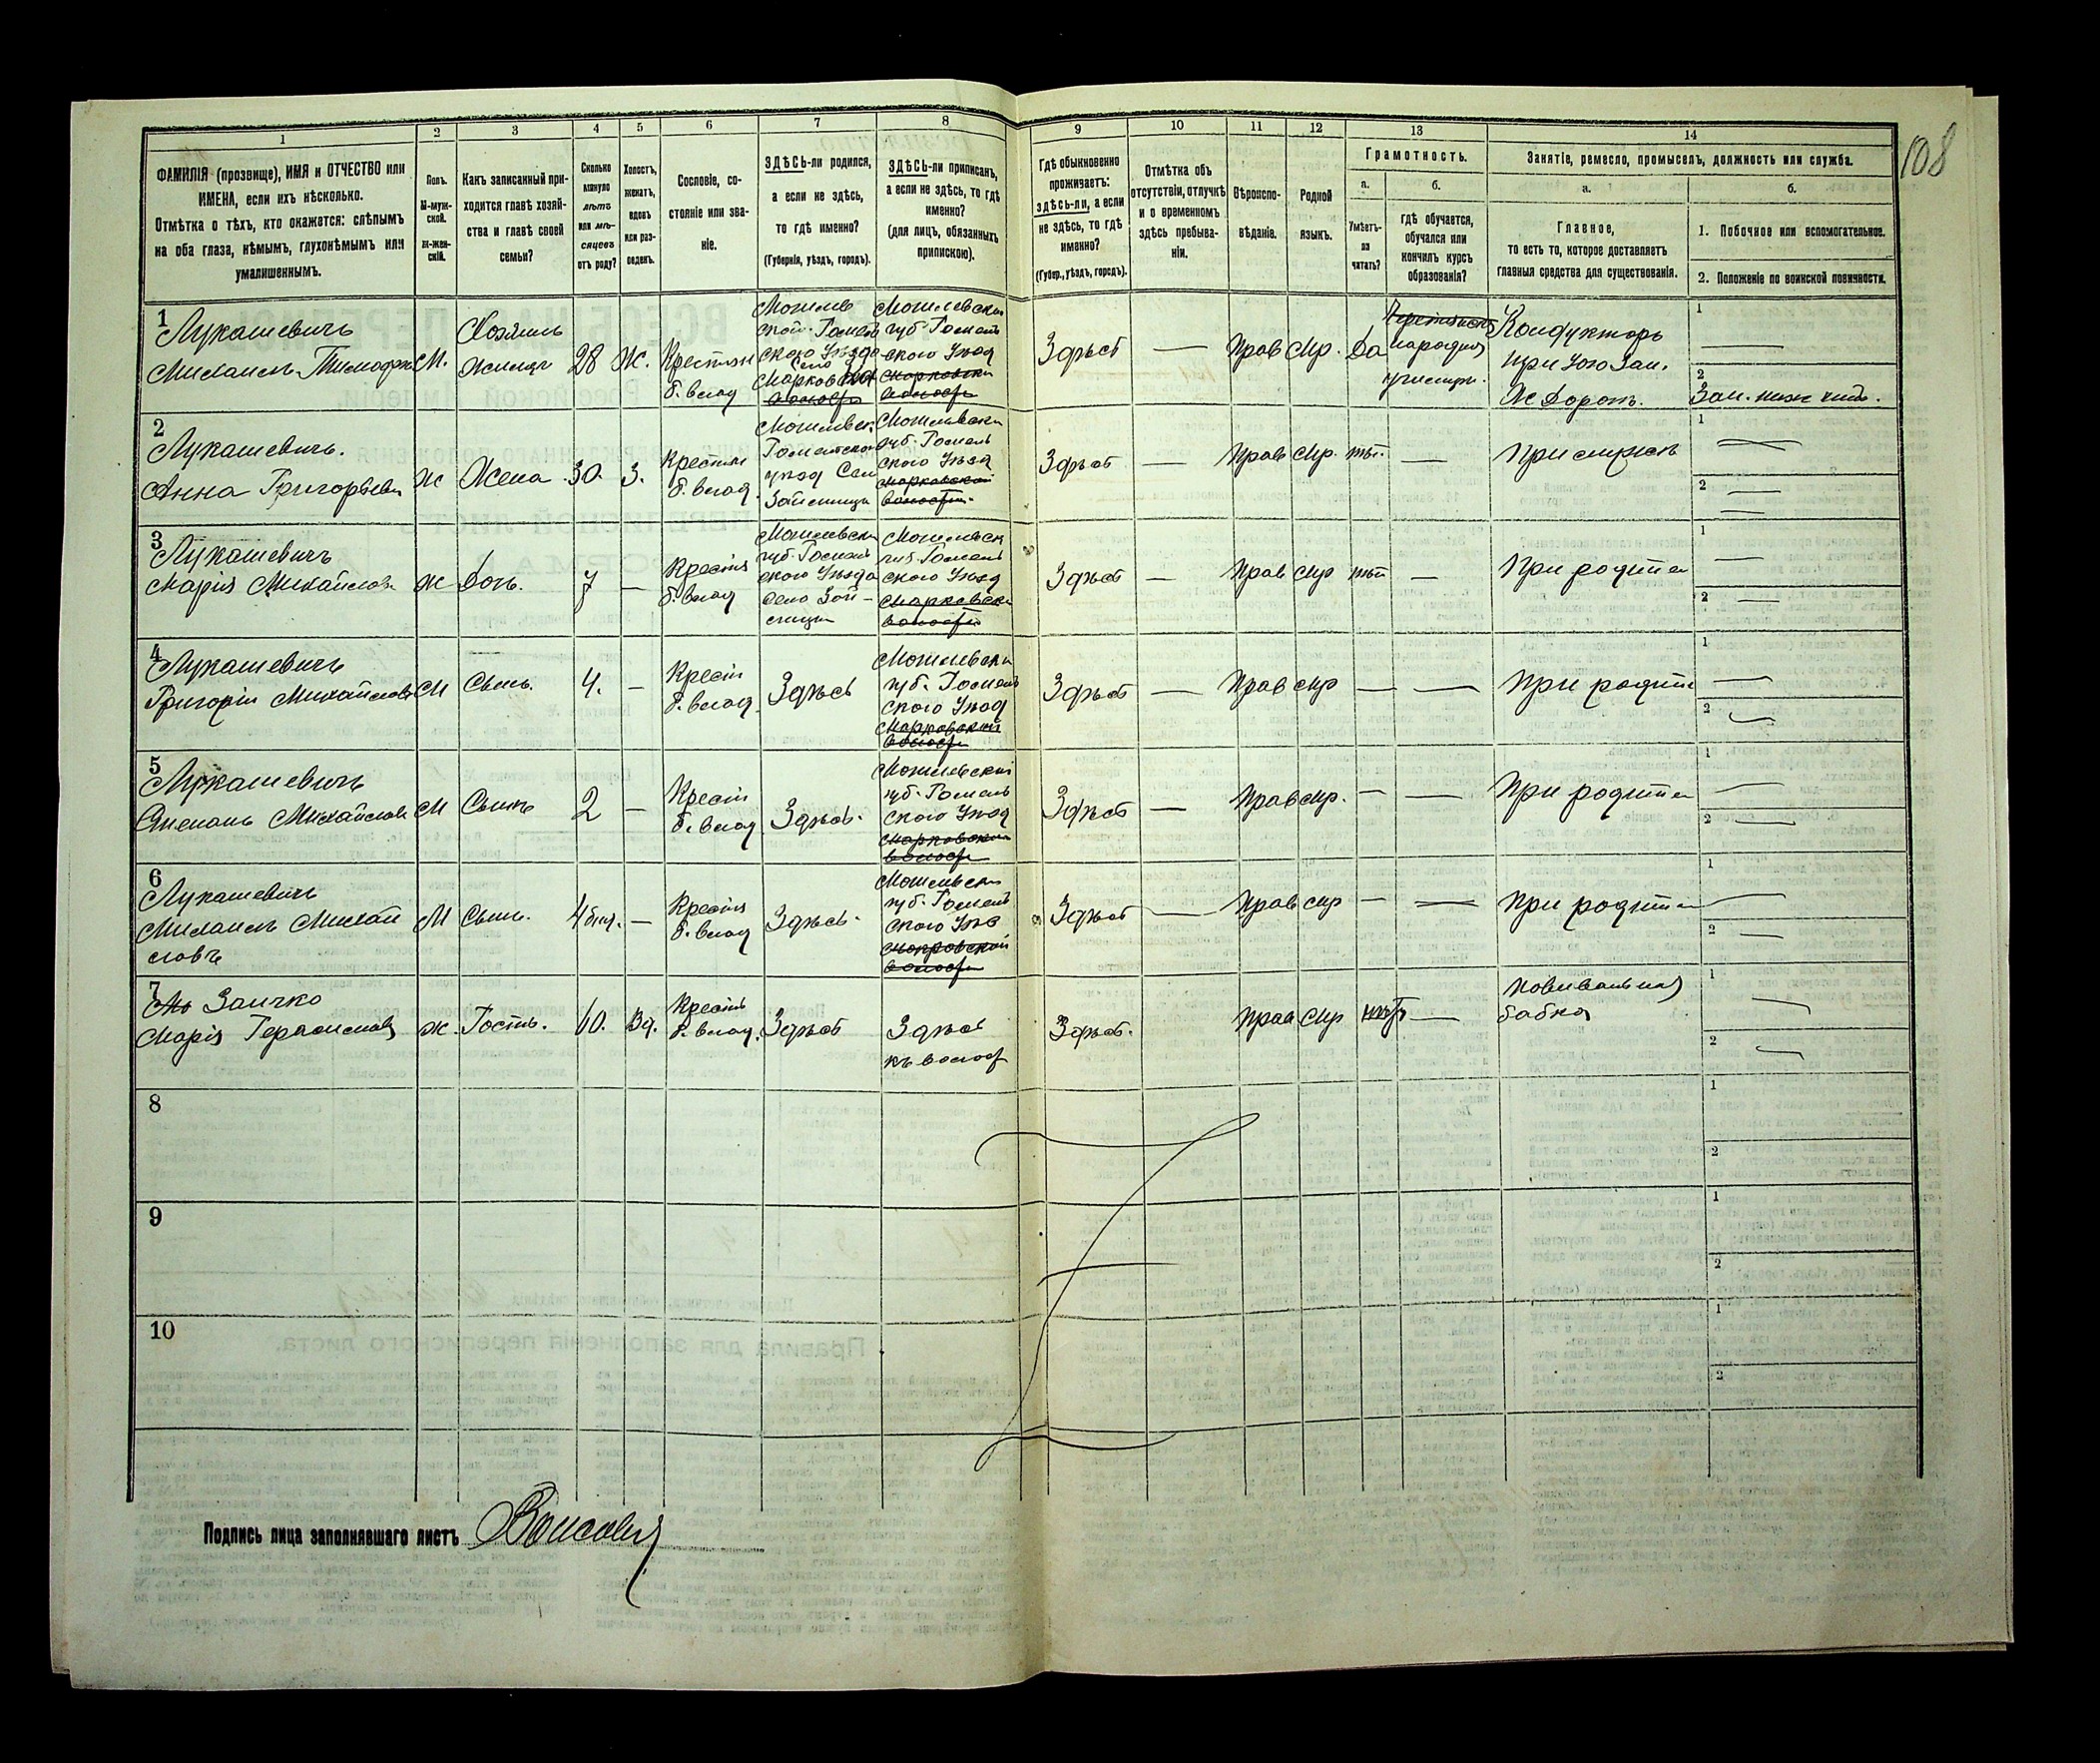 108
1 2 3 4 5 6 7 8 9 10 11 12 13 14
ФАМИЛІЯ (прозвище), ИМЯ и ОТЧЕСТВО или
ИМЕНА, если ихъ нѣсколько.
Отмѣтка о тѣхъ, кто окажется: слѣпымъ
на оба глаза, нѣмымъ, глухонѣмымъ или
умалишеннымъ.
Полъ.
М-муж-
ской.
ж-жен-
скій.
Какъ записанный при-
ходится главѣ хозяй-
ства и главѣ своей
семьи?
Сколько
минуло
лѣтъ
или мѣ-
сяцевъ
отъ роду?
Холостъ,
женатъ,
вдовъ
или раз-
веденъ.
Сословіе, со-
стояніе или зва-
ніе.
ЗДѢСЬ-ли родился,
а если не здѣсь,
то гдѣ именно?
(Губернія, уѣздъ, городъ).
ЗДѢСЬ-ли приписанъ,
а если не здѣсь, то гдѣ
именно?
(для лицъ, обязанныхъ
припискою).
Гдѣ обыкновенно
проживаетъ:
здѣсь-ли, а если
не здѣсь, то гдѣ
именно?
(Губер., уѣздъ, городъ).
Отмѣтка объ
отсутствіи, отлучкѣ
и о временномъ
здѣсь пребыва-
ніи.
Вѣроиспо-
вѣданіе.
Родной
языкъ.
Грамотность.
а.
Умѣетъ-
ли
читать?
б.
гдѣ обучается,
обучался или
кончилъ курсъ
образованія?
Занятіе, ремесло, промыселъ, должность или служба.
а.
Главное,
то есть то, которое доставляетъ
главныя средства для существованія.
б.
1. Побочное или вспомогательное.
2. Положеніе по воинской повинности.
1
Лукашевичъ
Михаилъ Тимофее
М.
Хозяинъ
28
Ж.
Крестьян
б. влад
Могилев
ской
ского Уѣзда
Село
Марков
волости
Могилевски
губ Гомель
ского Уѣзд
Марковски
волости
Здѣсь
—
Прав
Мр.
Да
народн
училищ.
Кондукторъ
при Юго Зап.
Ж Дорогъ.
1
—
2
Зап. ниж чинъ.
2
Лукашевичъ.
Анна Григорьевн
Ж
Жена
30.
З.
Крестьян
б. влад.
Могилевск
Гомельского
уѣзд Село
Могилевски
губ. Гомель
ского Уѣзд
Марковской
волости.
Здѣсь
—
Прав
—
При мужѣ
1
—
2
—
3
Лукашевичъ
Марія Михайлов
Ж
Дочь.
7
—
Крестья
б. влад
Могилевски
губ. Гомель
ского Уѣзда
село
Могилевск
губ. Гомель
ского Уѣзд
Марковски
волости
Здѣсь
—
Прав
—
При родител
1
—
2
—
4
Лукашевичъ
Григорій Михайловъ
М
Сынъ.
4.
—
Крестьн
б. влад.
Здѣсь
Могилевски
губ. Гомель
ского Уѣзд
Марковской
волости
Здѣсь
—
Прав
—
—
При родите
1
—
2
—
5
Лукашевичъ
Михайлов
М
Сынъ
2
—
Крестьн
б. влад
Здѣсь.
Могилевскій
губ. Гомель
ского Уѣзд
Марковской
волости
Здѣсь
—
Прав
—
—
При родител
1
—
2
—
6
Лукашевичъ
Михаилъ Михай
ловъ
М
Сынъ.
—
Крестья
б. влад
Здѣсь.
Могилевски
губ. Гомель
ского Уѣз
волости
Здѣсь
—
Прав
—
—
При родител
1
—
2
—
7
Заичко
Марія Герасимов
Ж.
Гость.
60.
Вд.
Крестья
б. влад.
Здѣсь
Здѣсь
къ волост
Здѣсь.
Прав
—
Повивальная
бабка
1
—
2
—
8
1
2
9
1
2
10
1
2
Подпись лица заполнявшаго листъ